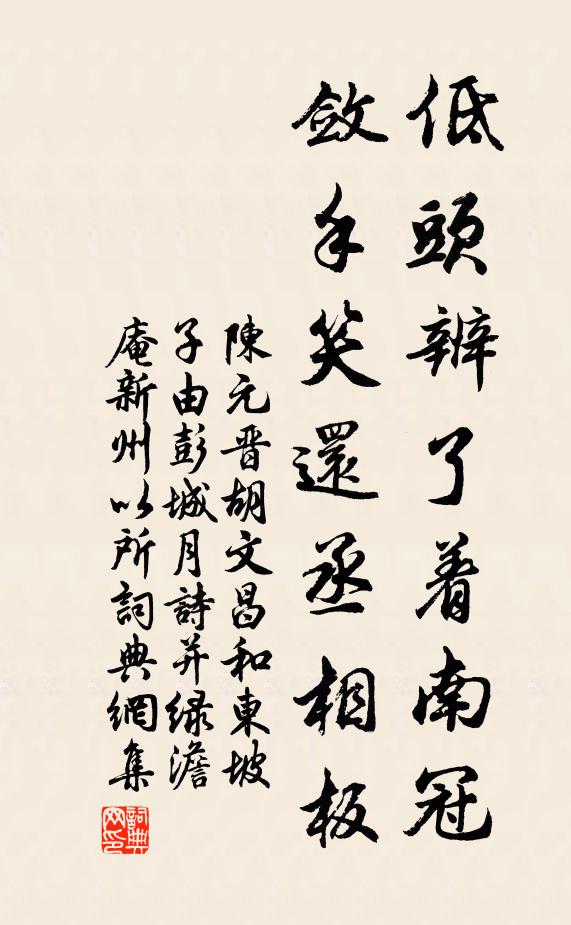 低頭辦了着南冠
斂手笑還丞相板
陳元晋胡文昌和東坡
子由彭城月詩并绿澹
庵新州以所詞典網集
詞典网印